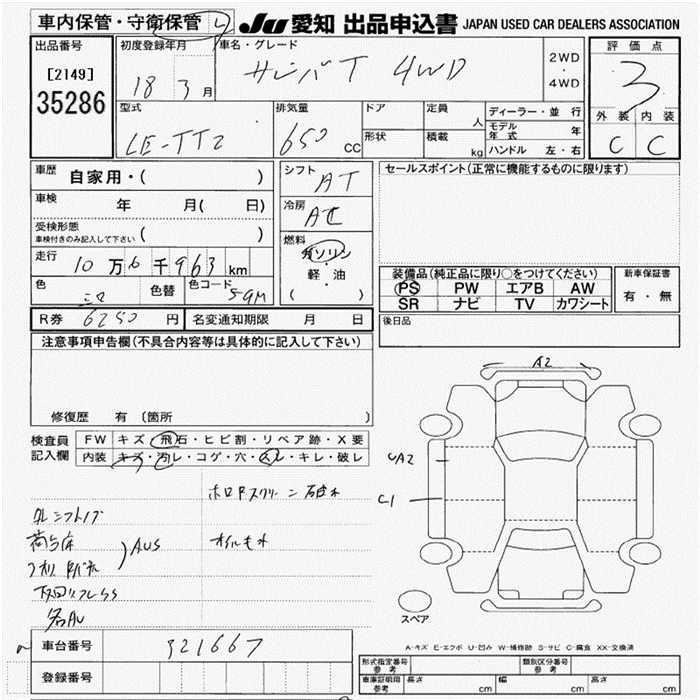 車内保管・守衛保管 レ JU 愛知 出品申込書 JAPAN USED CAR DEALERS ASSOCIATION
出品番号 初度登録年月 車名・グレード 2WD・4WD 評価点
[2149] 18 3月 サンバT 4WD 3
35286
型式 排気量 ドア 定員 人 ディーラー・並行 外装 内装
LE-TT2 650 CC 形状 積載 kg モデル年式 年 C C
ハンドル 左・右
車歴 自家用・( ) シフト AT セールスポイント(正常に機能するものに限ります)
車検 年 月( 日) 冷房 AC
受検形態 ( )
車検付きのみ記入して下さい
燃料 ガソリン・軽油 ( )
走行 10万6千963km
装備品(純正品に限り○をつけてください) 新車保証書
色 色替 色コード 59M PS PW エアB AW 有・無
SR ナビ TV カワシート
R券 6250円 名変通知期限 月 日 後日品
注意事項申告欄(不具合内容等は具体的に記入して下さい)
修復歴 有 (箇所
検査員記入欄 FW キズ・飛石・ヒビ割・リペア跡・X要
内装 キズ・汚レ・コゲ・穴・スレ・キレ・破レ
A2
UA2
C1
AUS
オイルもれ
スペア
A-キズ E-エクボ U-凹み W-補修跡 S-サビ C-腐食 XX-交換済
車台番号 321667
登録番号
形式指定番号 参考 類別区分番号 参考
車庫証明用 参考 長さ cm 幅 cm 高さ cm